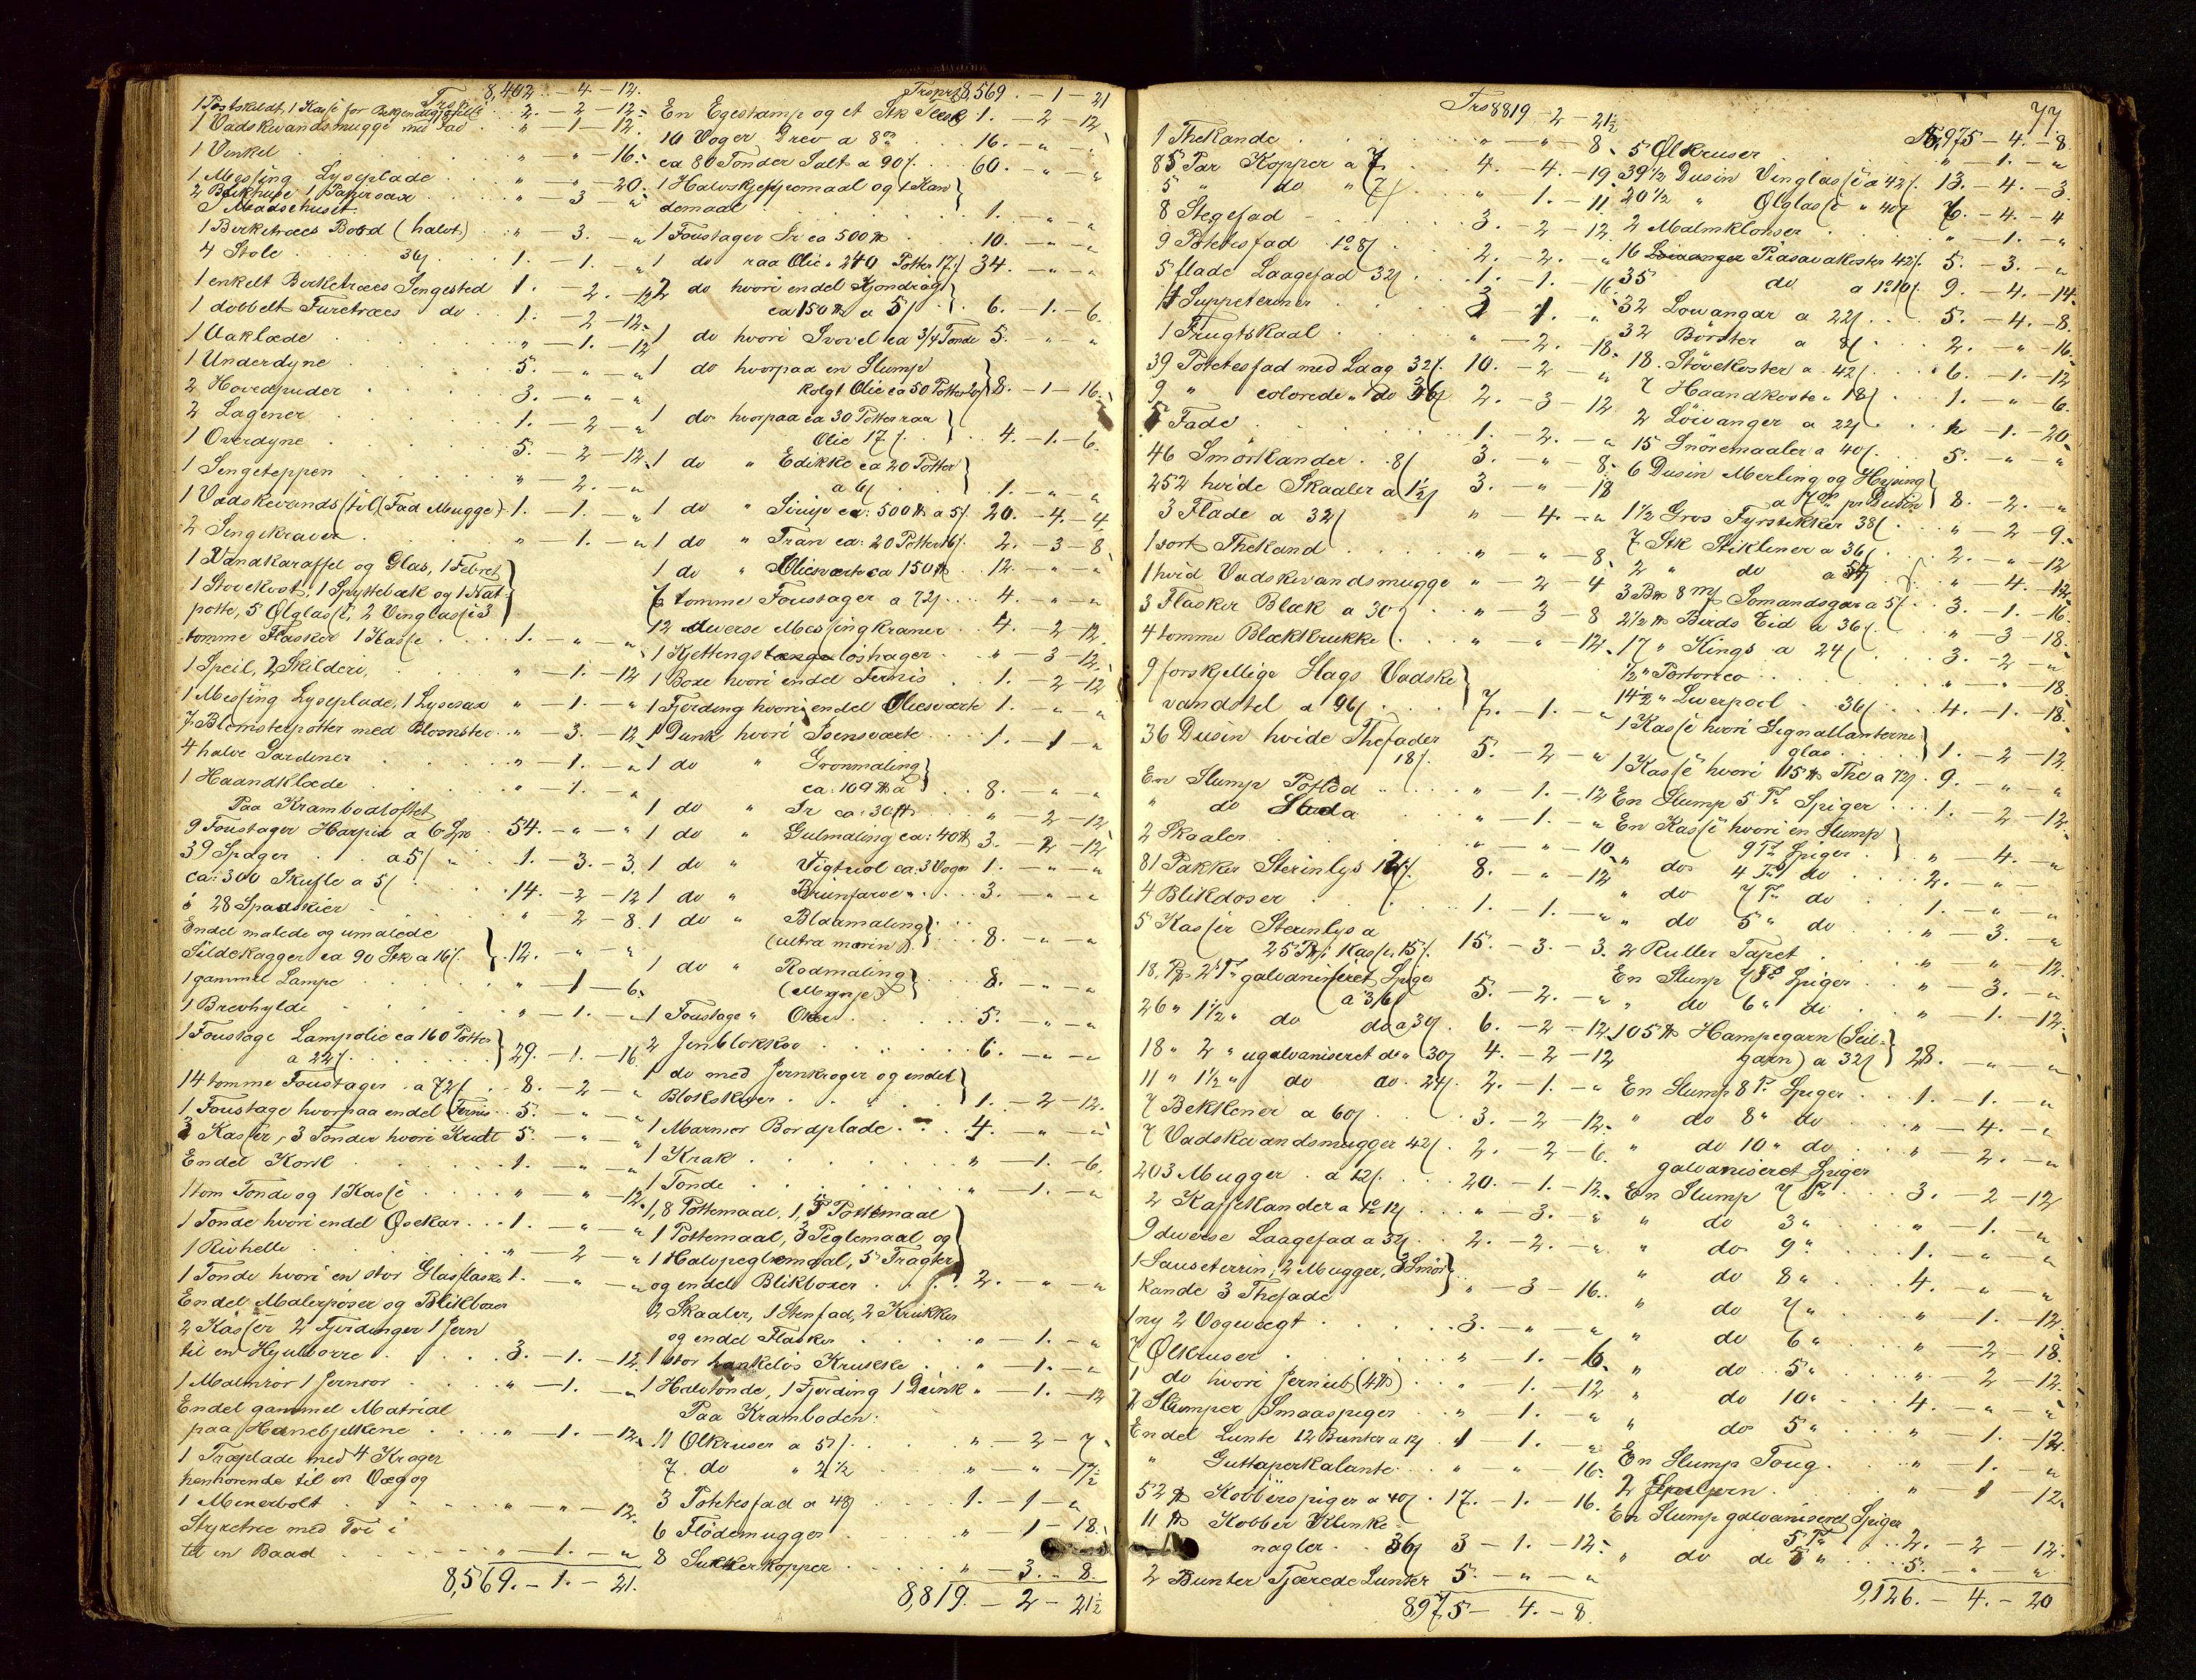 8,402 - 4 - 12.
1 Postskildt, 1 Kasse for Bekjendtgjørelse 2. - 2 - 12
1 Vadskevandsmugge med Fad " - 1 - 12.
1 Vinkel " - " - 16.
1 Messing Lyseplade " - " - 20.
2 Blækhuse 1 Papirsax " - 3 - "
I Madsehuset.
1 Birketræes Bord (halvt) " - 3. - "
4 Stole 36/ 1. - 1. - "
1 enkelt Birketræes Sengested 1. - 2. - 12
1 dobbelt Furetræes do 1. - 2 - 12.
1 Aaklæde " - 1. - 12
1 Underdyne 5. - " - "
2 Hovedpuder 3. - " - "
2 Lagener 1. - 2 - "
1 Overdyne 5. - 2 - 12.
1 Sengeteppen " - 2. - "
1 Vadskevandsstel (Fad Mugge) 1. - 1. - "
2 Sengekraver " - 1. - "
1 Vandkaraffel og Glas, 1 Febret
1 Stovekost, 1 Spyttebak og 1 Nat
potte, 5 Ølglasse, 2 Vinglasse 3
tomme Flasker 1 Kasse 1. - " - "
1 Speil, 2 Skilderi, " - 1. - 12
1 Messing Lyseplade, 1 Lysesax " - 1. - "
7 Blomsterpotter med Blomster " - 3. - 12
4 halve Gardiner " - 1. - "
1 Haandklæde " - 1. - "
Paa Krambodloftet
9 Foustager Harpix a 6 Sp 54. - " - "
39 Spager a 5/ 1. - 3. - 3.
ca: 300 Skufle a 5/ 14. - 2 - 12
28 Spadskier " - 2 - 8.
Endel malede og umalede
Sildekagger ca 90 Stk a 16/. 12. - " - "
1 gammel Lampe " - 1 - 6.
1 Brevhylde " - 1. - "
1 Foustage Lampolie ca 160 Potter
a 22/. 29. - 1. - 16.
14 tomme Foustager a 72/ 8. - 2 - "
1 Foustage hvorpaa endel Fernis 5. - " - "
3 Kasser, 3 Tønder hvori Kridt 5. - " - "
Endel Kork 1. - " - "
1 tom Tønde og 1 Kasse " - " - 12.
1 Tønde hvori endel Øsekar 1. - " - "
1 Rivhelle " - 2 - "
1 Tønde hvori en stor Glasflaske 1. - " - "
Endel Malerposer og Blikboxer
2 Kasser 2 Fjerdinger 1 Jern
til en Hjulborre 3. - 1. - 12.
1 Malmror 1 Jernror " - 1. - "
Endel gammel Matrial
paa Hanebjelkene " - 1. - 12.
1 Træplade med 4 Kroger
henhorende til en Væg og
1 Menerbolt " - " - 12.
Styretræ med Toi i
til en Baad " - 1. - "
8,569. - 1. - 21.
Trsprt 8,569. - 1 - 21
En Egestamp og et Stk Teesk 1. - 2 - 12
10 Voger Drev a 8 16. - " - "
ca 80 Tonder Salt a 90/. 60. - " - "
1 Halvskjeppemaal og 1 Kan
demaal 1. - " - "
1 Foustager Ir ca 500 ℔ 10. - " - "
1 do raa Olie " 240 Potter 17/ 34. - " - "
2 do hvori endel Kjondrog
ca 150 ℔ a 5/ 6. - 1. - 6.
1 do hvori Svovel ca 3/4 Tonde 5. - " - "
1 do hvorpaa en Slump
kolgt Olie ca 50 Potter 20/ 8. - 1 - 16.
1 do hvorpaa ca 30 Potter raa
Olie 17/. 4. - 1. - 6.
1 do " Edikke ca 20 Potter
a 6/ 1. - " - "
1 do " Sirup ca: 500 ℔ a 5/. 20. - 4. - 4
1 do " Tran ca: 20 Potter 16/. 2. - 3 - 8.
1 do " Oliesværte ca 150 ℔ 12. - " - "
6 tomme Foustager a 72/ 4. - " - "
12 diverse Messingkraner 4. - 2 - 12.
1 Kjettingstange lostager " - 3 - 12.
1 Boxe hvori endel Fernis 1. - 2 - 12
1 Fjerding hvori endel Oliesværte 1. - " - "
1 Dunk hvori Isensværte 1. - 1 - "
1 do " Gronmaling
ca: 109 ℔ a 8. - " - "
1 do " Ir ca: 30 ℔ " - 2 - 12
1 do " Gulmaling ca: 40 ℔ 3. - 2 - 12
1 do " Vigtriol ca. 3 Voger 1. - " - "
1 do " Brunfarve " 3. - " - "
1 do " Blaamaling
(ultra marin) 8. - " - "
1 do " Rodmaling
(Mynje) 8. - " - "
1 Foustage " Oker 5. - " - "
2 Jernblokkov 6. - " - "
1 do med Jernkroger og endel
Blokskiver 1. - 2 - 12.
1 Marmor Bordplade 4. - " - "
1 Krak " - 1. - 6.
1 Tonde " - 1. - "
1, 8 Pottemaal, 1, 5 Pottemaal
1 Pottemaal, 3 Peglemaal og
1 Halvpeglemaal, 5 Tragter
og endel Blikboxer 2. - " - "
2 Skaaler, 1 Stenfad, 2 Krukker
og endel Flasker " - 1. - "
1 stor hankelos Krukke " - 1. - "
1 Halvtonde, 1 Fjerding 1 Dunk " - 1. - 12
Paa Kramboden:
11 Olkruser a 5/. " - 2 - 7
7 do " 2 1/2 " - " - 17 1/2
3 Potetesfad a 48/ 1. - 1 - "
6 Flödemugger " - 1 - 18.
8 Sukkerkopper " - 3. - 8.
8,819. - 2 - 21 1/2
77
Trs 8819 - 2 - 21 1/2
1 Thekande " - " - 8.
85 Par Kopper a 7 4. - 4. - 19
5 " do " 7/ " - 1. - 11.
8 Stegefad 3. - 2 - 12
9 Potetesfad 2. - 2. - "
5 flade Laagefad 32/ 1. - 1. - 16.
4 Suppeteriner 3 - 1. - "
1 Frugtskaal " - 2. - 18.
39 Potetesfad med Laag 32/. 10. - 2 - "
9 " colorede " do 36/ 2. - 3 - 12
5 Fade 1. - 2. - "
46 Smörkander 8/ 3. - " - 8.
252 hvide Skaaler a 1 1/2/ 3. - " - 18
3 Flade a 32/ " - 4. - "
1 sort Thekand " - " - 8.
1 hvid Vadskevandsmugge " - 2 - 4
3 Flasker Blæk a 30/ " - 3 - 8
4 tomme Blækkrukke " - " - 12.
9 forskjellige Slags Vadske
vandstel a 96/ 7. - 1. - "
36 Dusin hvide Thefader
18/. 5. - 2 - "
En Slump Potlod " - 1. - 12
" do Soda " - 1. - "
2 Skaaler " - " - 10
81 Pakker Sterinlys 12/. 8. - " - 12
4 Blikdoser 1. 1. - "
5 Kasser Sterinlys a
25 Pk i Kasse, 15/. 15. - 3. - 3.
18 Pg 2" galvaniseret Spiger
a 36/ 5. - 2. - "
26 " 1 1/2 " do do a 30/. 6. - 2 - 12
18 " 2 " ugalvaniseret do " 30/ 4. - 2 - 12
11 " 1 1/2 " do do. 24/. 2. - 1. - "
7 Bekkener a 60/ 3. - 2 - 12.
7 Vadskevandsmugger 42/. 2. - 2 - 6.
203 Mugger a 12/. 20. - 1. - 12.
2 Kaffekander a 1. 12/ " - 3. - "
9 diverse Laagefad a 32/ 2. - 2. - "
1 Sauseterrin, 2 Mugger, 3 Smör
kande 3 Thefade " - 3 - 16.
1 ny 2 Vogvægt 3. - " - "
7 Ølkruser " - 1. - 6.
1 do hvori Jernub (4 ℔) " - 1. - 12
2 Slumper Smaaspiger " - 1. - "
Endel Lunte 12 Bunter a 12/ 1 - 1. - "
" Guttaperkalunte " - " - 16.
52 ℔ Kobberspiger a 40/ 17. - 1. - 16.
11 ℔ Kobber Klinke
nagler 36/ 3 - 1. - 12.
2 Bunter Tjærede Lunter 5. - " - "
8975 - 4. - 8
8,975 - 4. - 8.
5 Ølkruser " - 1. - "
39 1/2 Dusin Vinglasse a 42/. 13. - 4. - 3.
20 1/2 " Ølglasse " 40/ 7. - 4. - 4
2 Malmklokker " - 1. - "
16 Piasavakoster 42/. 5. - 3. - "
35 do a 1. 10/ 9. - 4. - 14.
32 Lowangar a 22/ 5. - 4. - 8.
32 Börster a 8/ 2. - " - 16.
18. Stövekoster a 42/ 6. - 1. - 12
7 Haandkoste " 18/ 1. - " - 6.
2 Löivanger a 22/ " - 1. - 20.
15 Snöremaaler a 40/ 5. - " - "
6 Dusin Merling og Hysing
a pr Dusin 8. - 2. - "
1 1/2 Gros Fyrstikker 38/ " - 2 - 9.
7 Stk Stikliner a 36/ 2. - " - 12
2 " do a 54/ " - 4. - 12.
3 B℔ 8 Somandsgar a 5/ 3. - 1. - 16.
2 1/2 ℔ Birds Eid a 36/ " - 3 - 18.
17 " Kings a 24/ 3. - 2 - "
1/2 " Portorico " - " - 18.
14 1/2 " Liverpool 36/ 4. - 1. - 18.
1 Kasse hvori Signallanterne
glas 1. - 2 - 12.
1 Kasse hvori 15 ℔ The a 72/. 9. - " - "
En Slump 5 T" Spiger 1. - 2 - 12.
En Kasse hvori en Slump
9 T" Spiger " - 4. - "
" do 4 T" do 2. - " - "
" do 7 T" do 1. - " - "
" do 5 " do " - 3. - "
2 Ruller Tapet " - " - 12.
En Slump 7 T" Spiger " - 3. - "
" do 6 " do " - 1. - 12.
105 ℔ Hampegarn (Seil=
garn) a 32/ 28. - " - "
En Slump 8 T" Spiger 1. - 1. - "
" do 8 " do " - 4. - "
" do 10 " do " - 2. - "
galvaniseret Spiger
En Slump 7 T" 3. - 2 - 12
" do 3 " " - 1. - "
" do 9 " 1. - " - "
" do 8 " 4. - " - "
" do 7 " " - 1. - 12.
" do 6 " " - 2 - 18.
" do 5 " " - 2 - 12.
" do 10 " 4. - " - "
" do 5 " " 1. - 12.
En Slump Toug " - 1. - "
2 " 1 - 12.
En Slump galvaniseret Spiger
5 T" 2. - 2 - 12.
" do do 5 " 5. - " - "
9,126. - 4. - 20